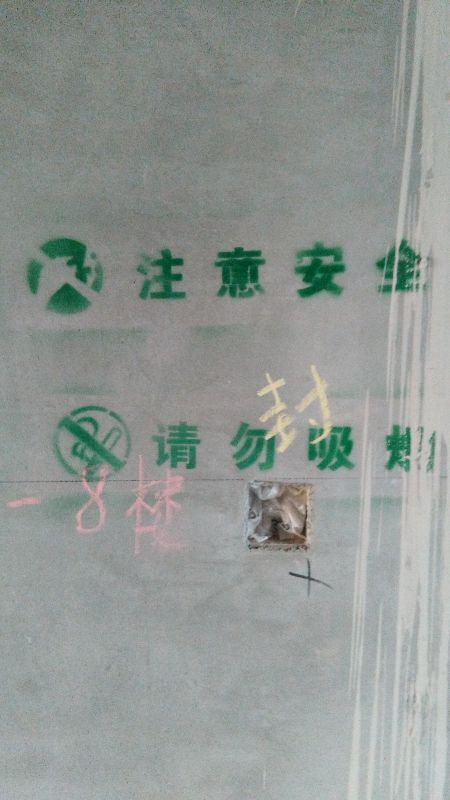 注意安全
封
请勿吸烟
-8楼